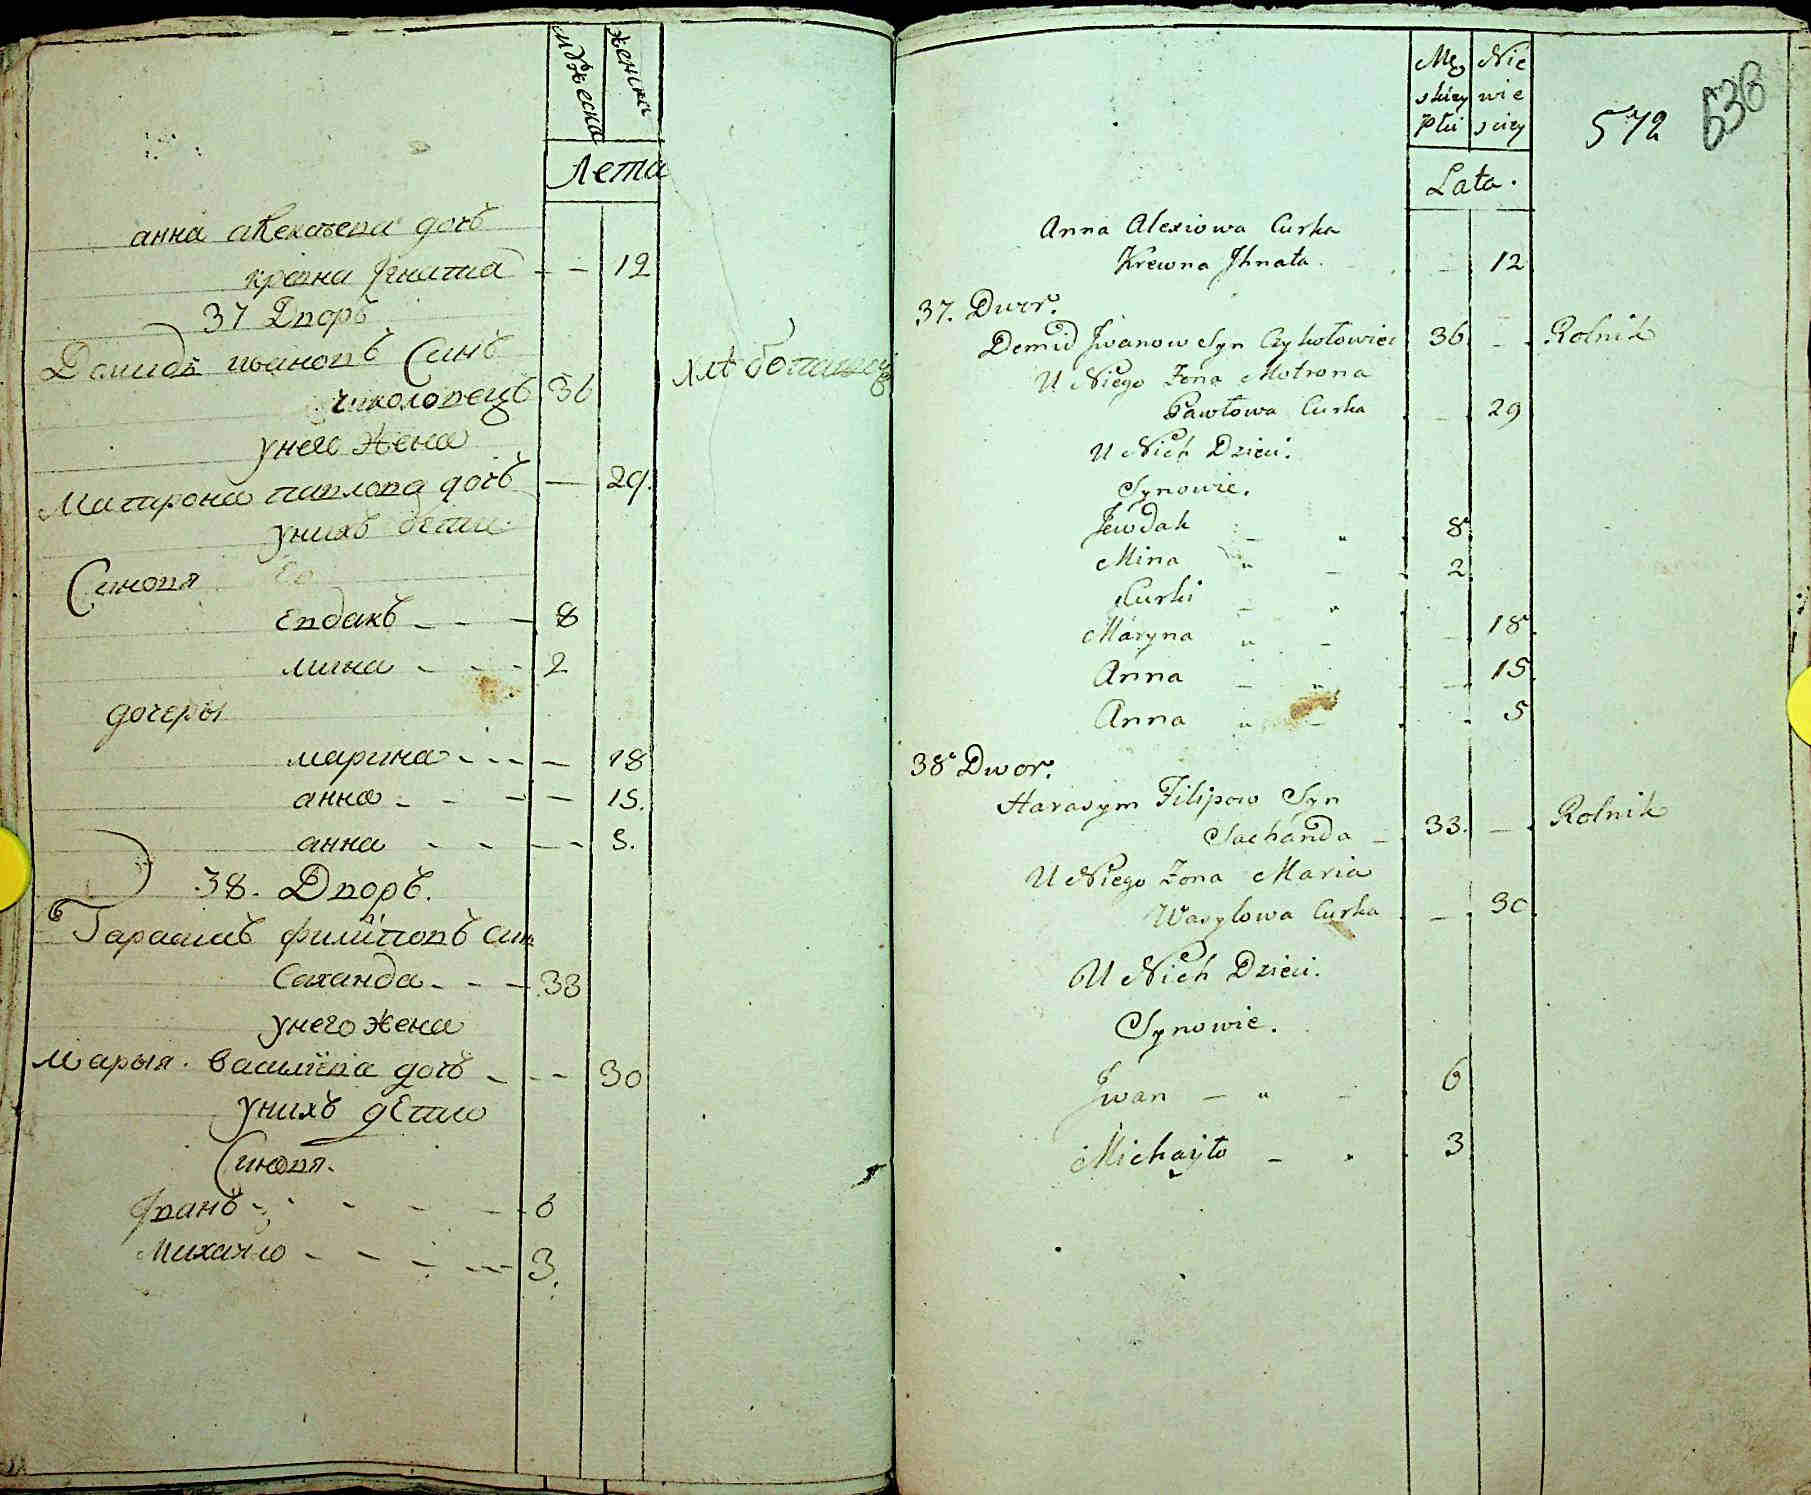 мужеска
женска
Лета
анна алексеева дочь
кревна Игната - - 12
37 Дворъ
Демидъ ивановъ Синъ
чиколовецъ 36
хлебопашец
унего жена
Матрона павлова дочь — 29.
унихъ дети
Синовя
евдакъ - - - 8
мина - - - 2
дочеры
марина - - - - 18
анна - - - - 15.
анна - - - - 5.
38. Дворъ.
Гарасимъ филиповъ син
Саханда - - - 33
унего жена
Марыя василева дочь - - - 30
унихъ дети
Синовя.
Иванъ - - - - - 6
Михайло - - - - - 3.
Męskiey Płci
Niewiesciey
572 636
Lata.
Anna Alexiowa Curka
Krewna Jhnata. - 12
37. Dwor.
Demid Jwanow Syn Czykołowiec 36 - Rolnik
U Niego Zona Motrona
Pawłowa Curka - 29
U Nich Dzieci.
Synowie.
Jewdak - " 8
Mina " - 2
Curki - "
Maryna " - - 18
Anna - " - 15
Anna " - - 5
38 Dwor.
Harasym Filipow Syn
Sachanda - 33. - Rolnik
U Niego Zona Maria
Wasylowa Curka - 30
U Nich Dzieci.
Synowie.
Jwan - " - 6
Michayło - " 3